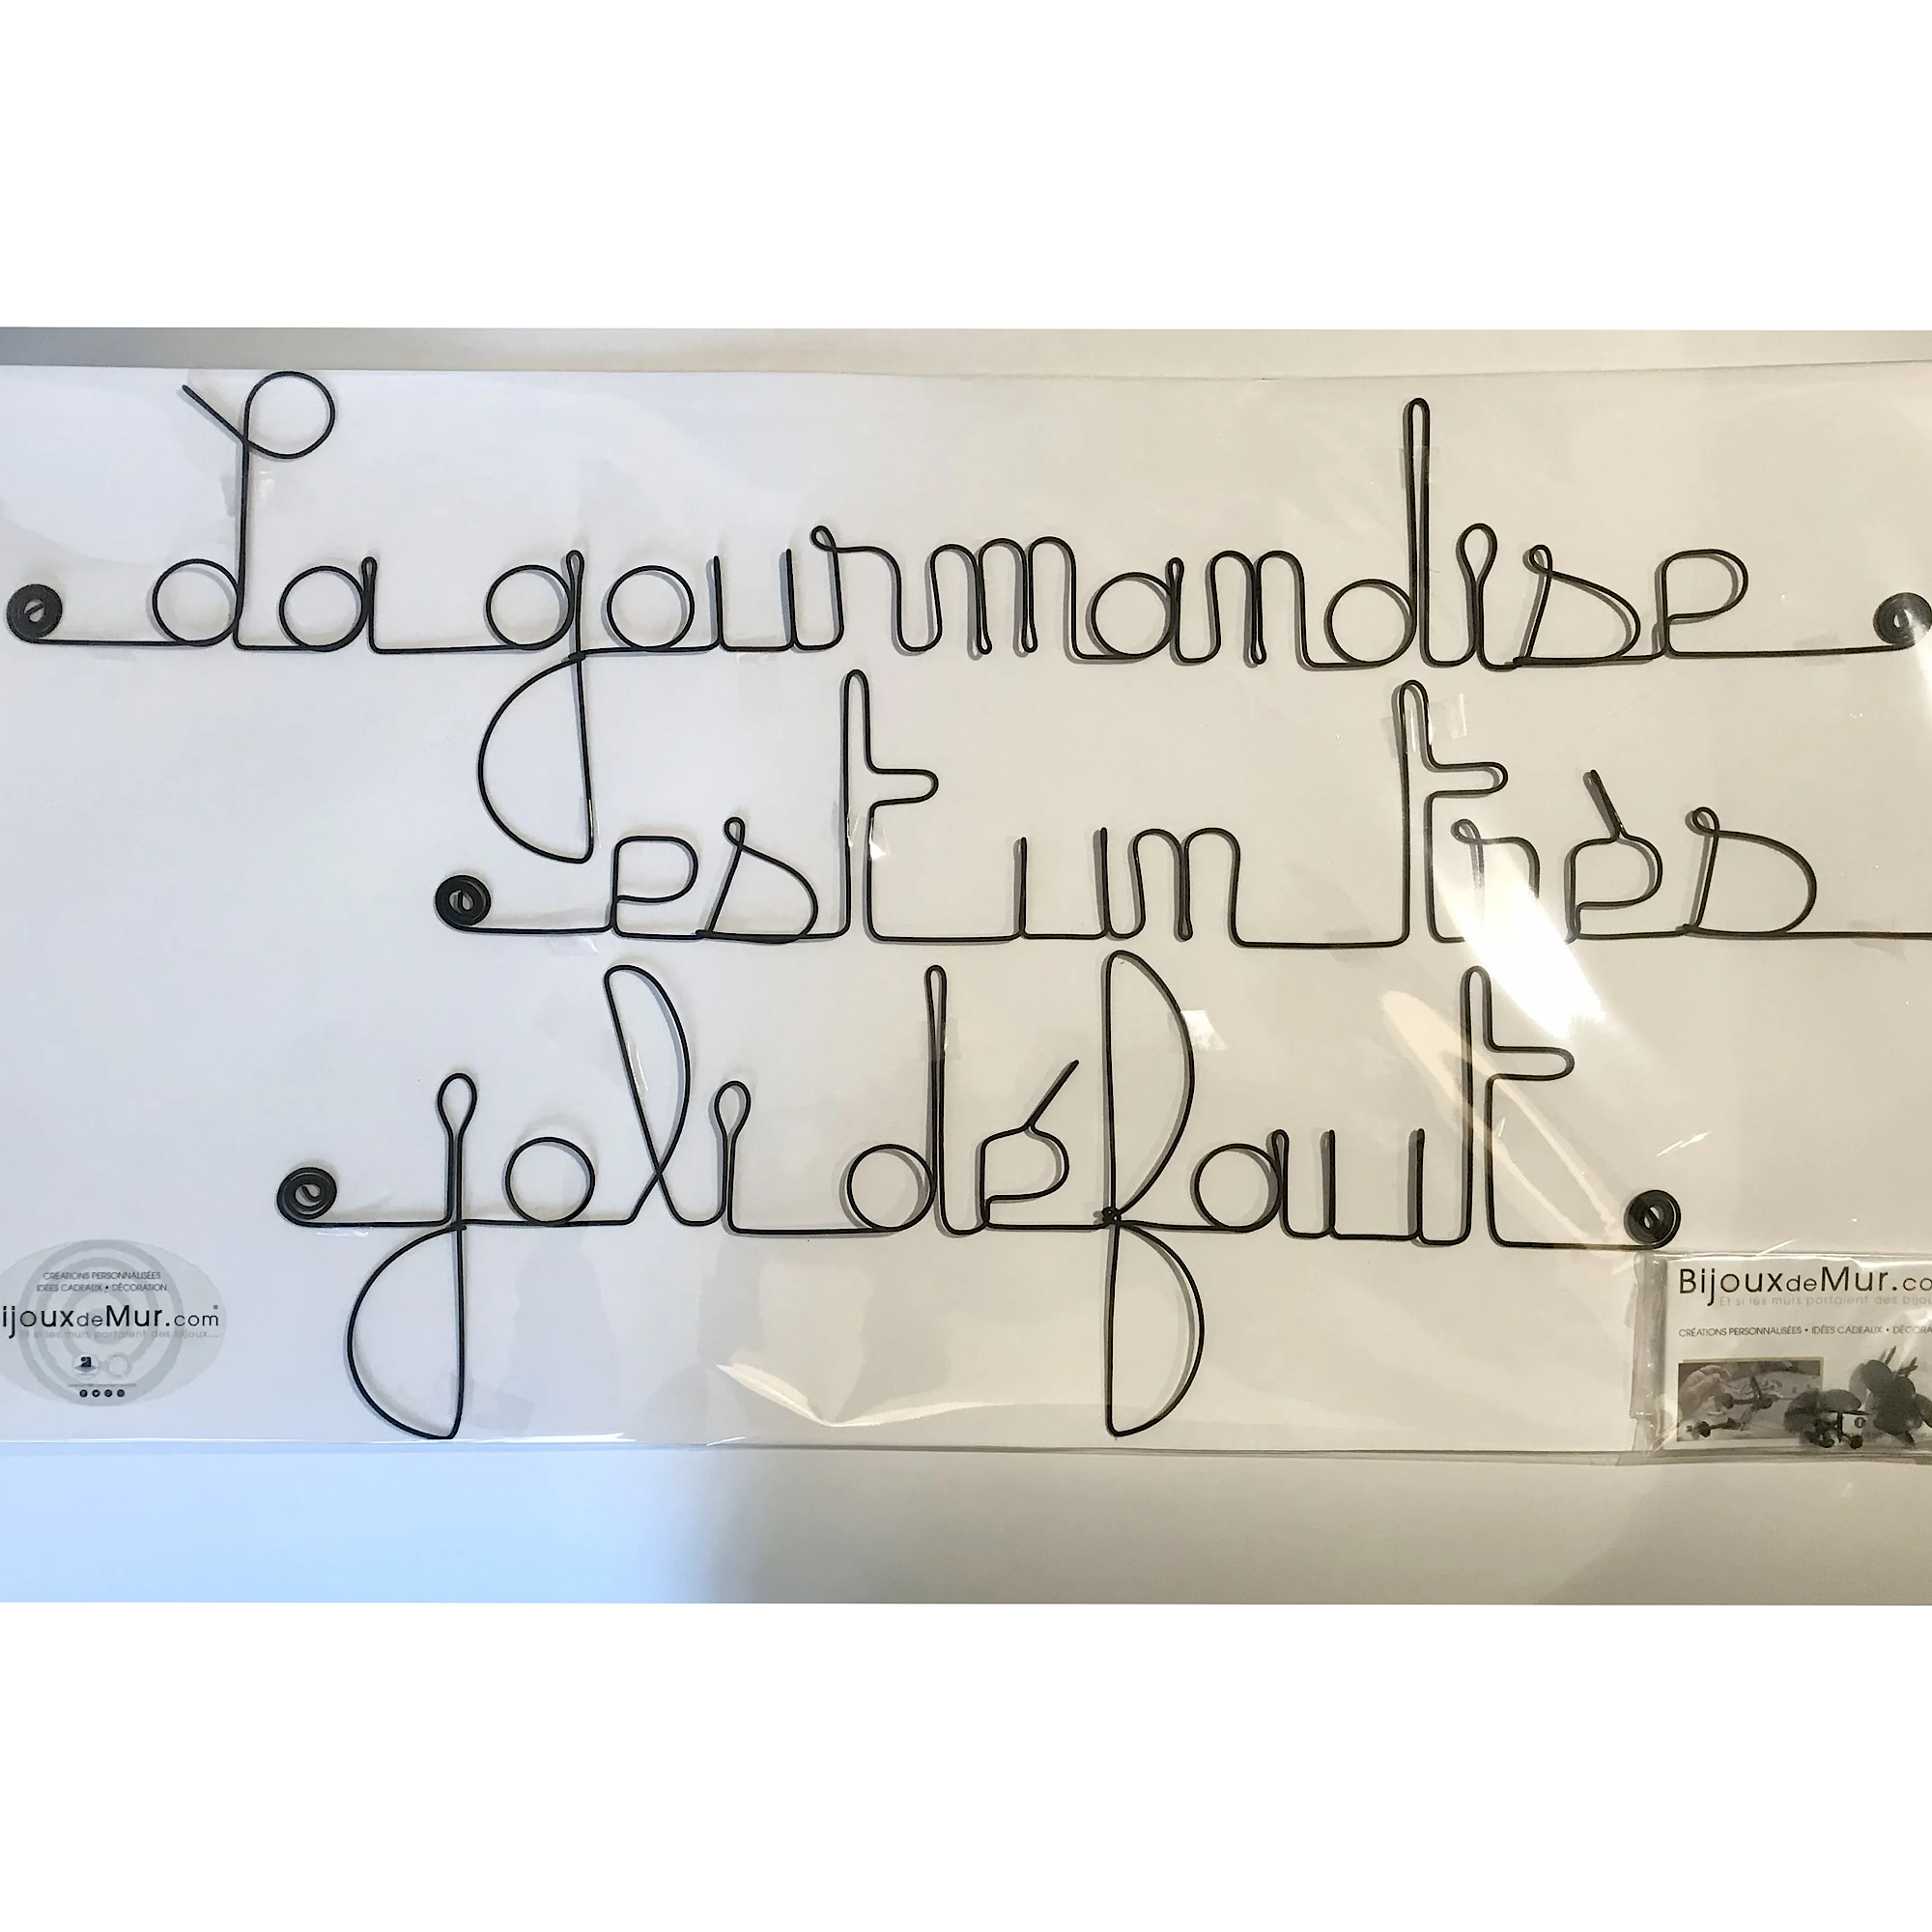 La gourmandise
est un très
joli défaut
CRÉATIONS PERSONNALISÉES
IDÉES CADEAUX • DÉCORATION
ijouxdeMur.com
Et si les murs portaient des bijoux...
BijouxdeMur.co
Et si les murs portaient des bijou
CRÉATIONS PERSONNALISÉES • IDÉES CADEAUX • DÉCORA